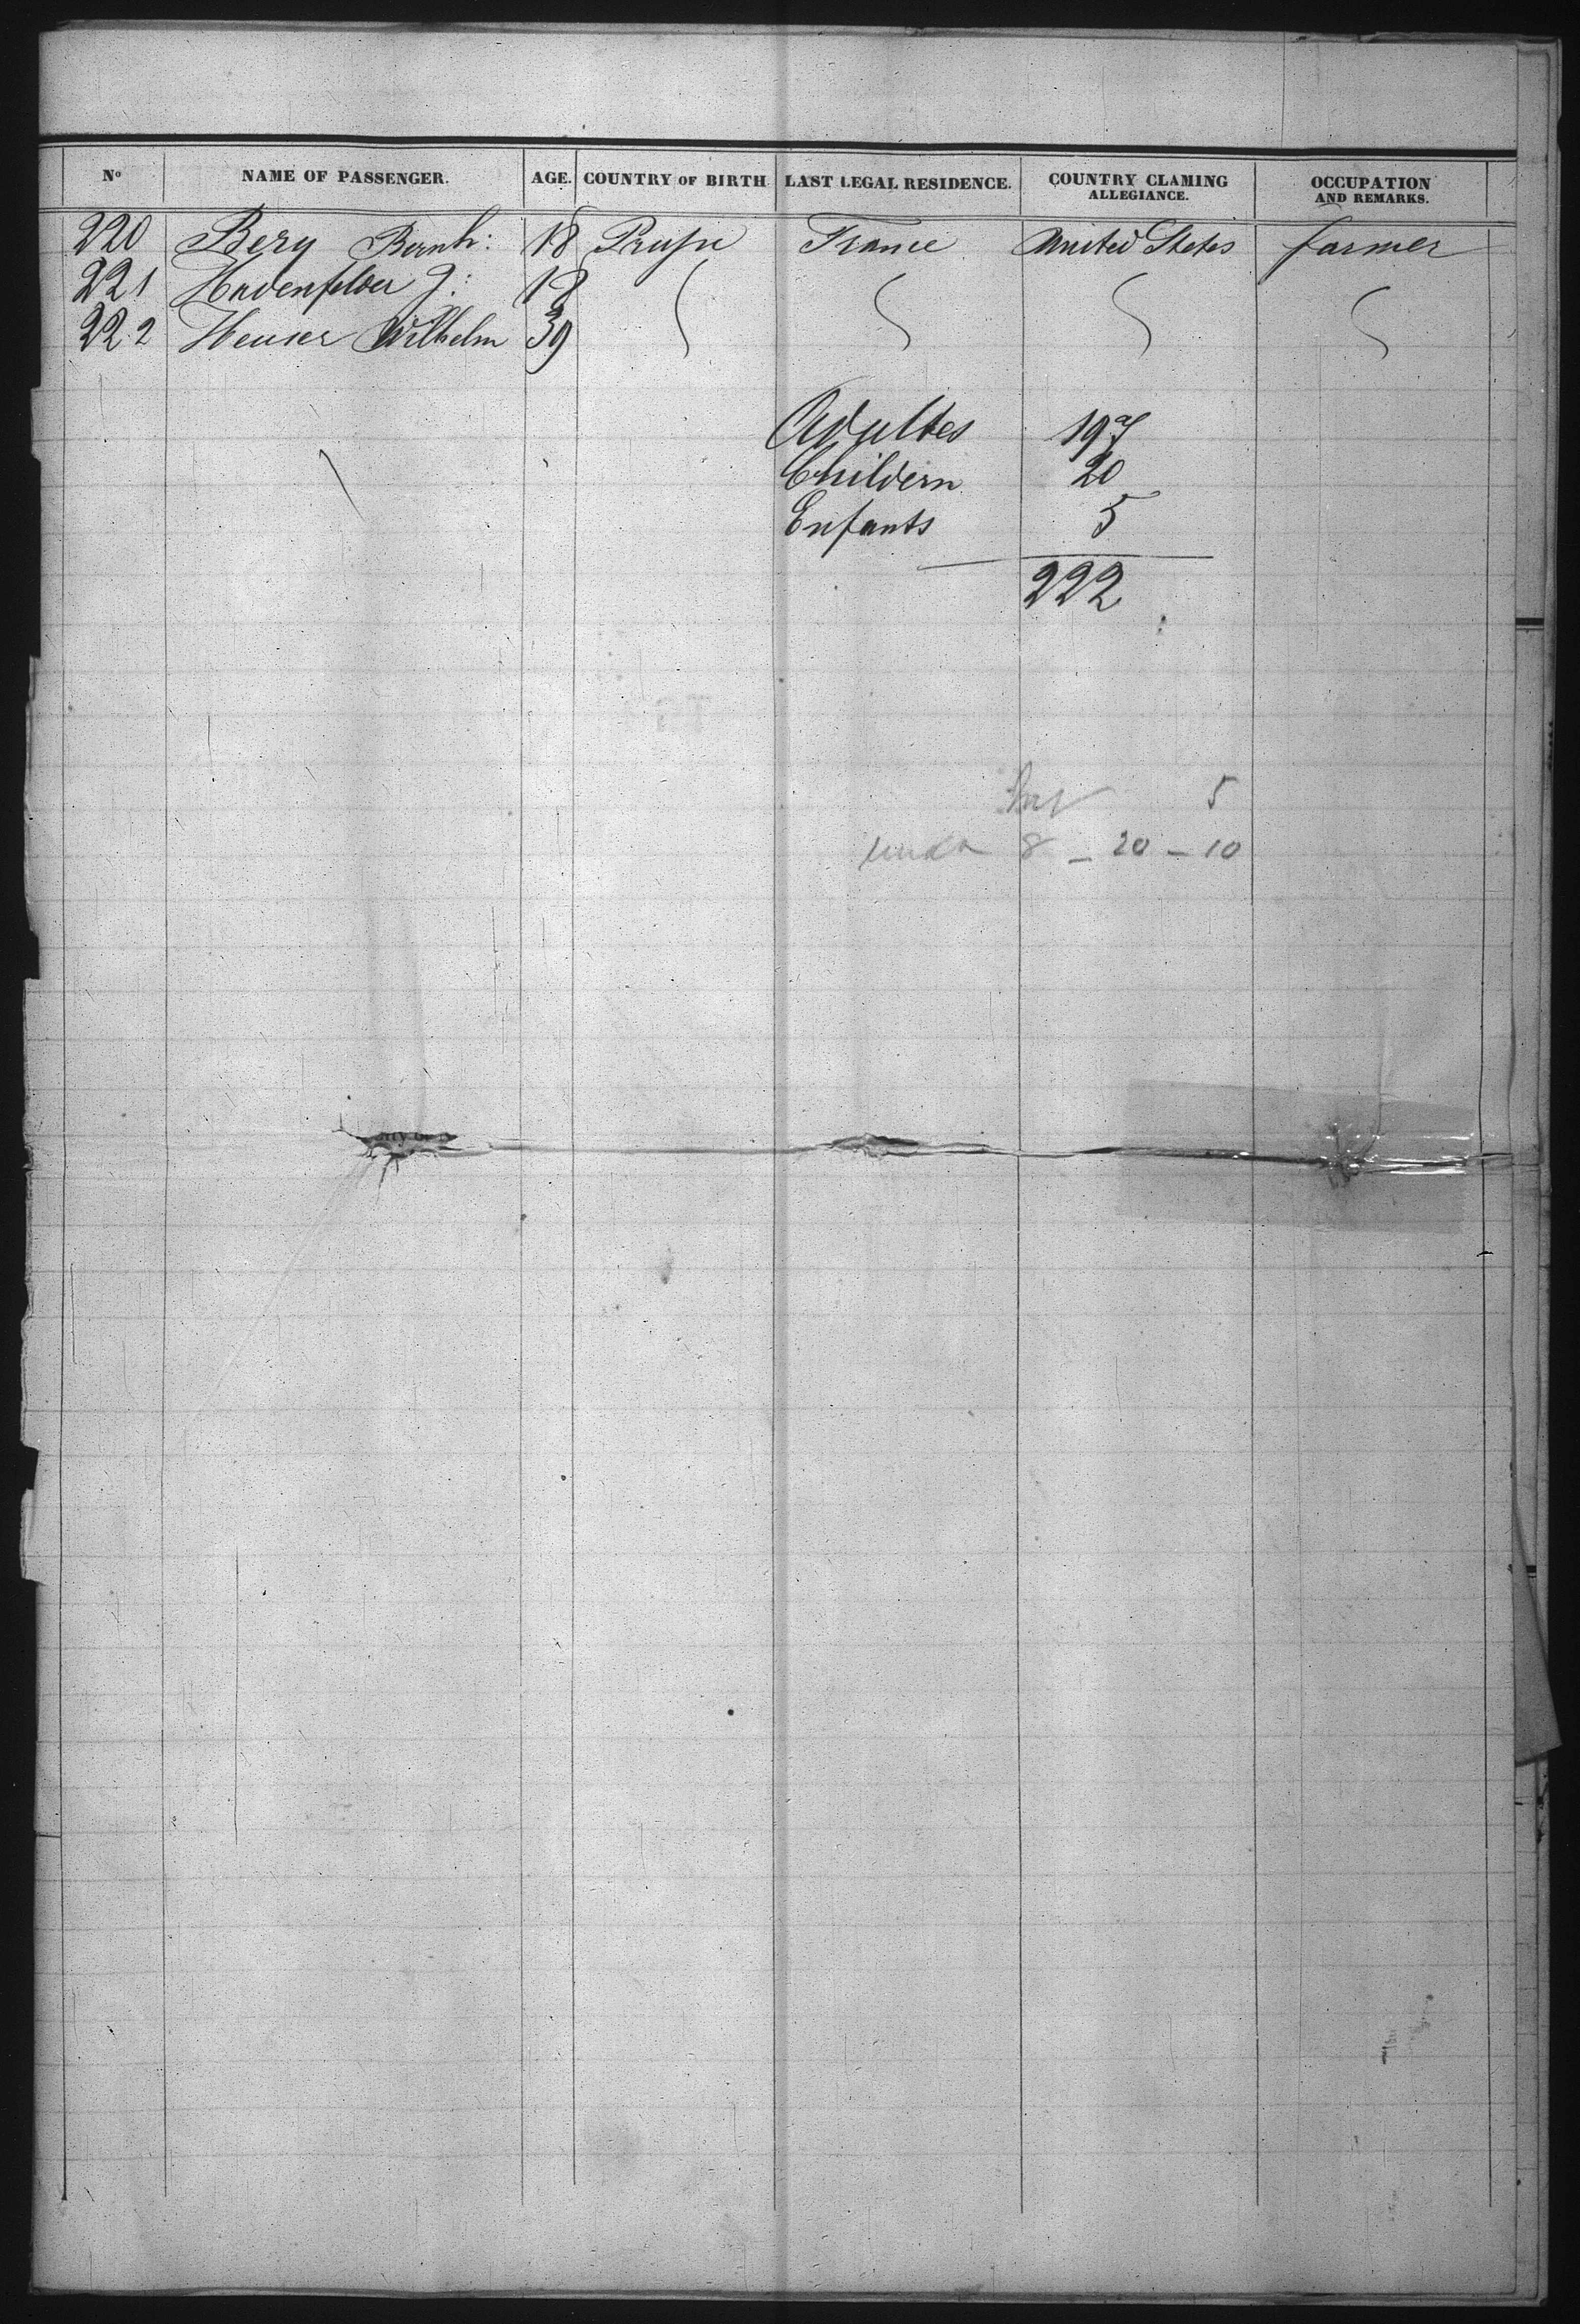 Nº NAME OF PASSENGER. AGE. COUNTRY OF BIRTH LAST LEGAL RESIDENCE. COUNTRY CLAMING ALLEGIANCE. OCCUPATION AND REMARKS.
220 Berg Bernh: 18 Prusse France United States farmer
221 Hadenfelder J: 18
222 Heuser Wilhelm 39
Adultes 197
Childern 20
Enfants 5
222
5
8 - 20 - 10